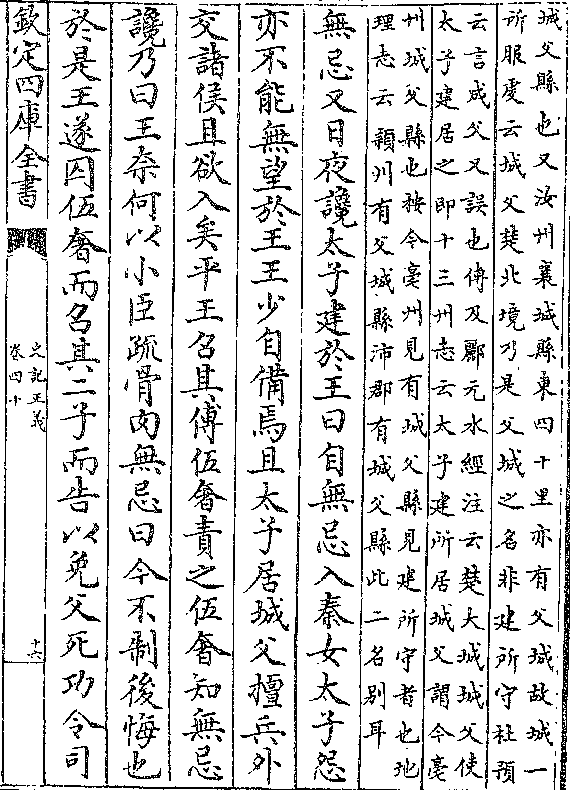 城父縣也又汝州襄城縣東四十里亦有父城故城一
所服虔云城父楚北境乃是父城之名非建所守杜預
云言成父又誤也傅及酈元水經注云楚大城城父使
太子建居之即十三州志云太子建所居城父謂今亳
州城父縣也按今亳州見有城父縣見建所守者也地
理志云潁川有父城縣沛郡有城父縣此二名别耳
無忌又日夜讒太子建於王曰自無忌入秦女太子怨
亦不能無望於王王少自備焉且太子居城父擅兵外
交諸侯且欲入矣平王召其傅伍奢責之伍奢知無忌
讒乃曰王奈何以小臣疏骨肉無忌曰今不制後悔也
於是王遂囚伍奢而召其二子而告以免父死乃令司
欽定四庫全書
史記正義
卷四十
十六